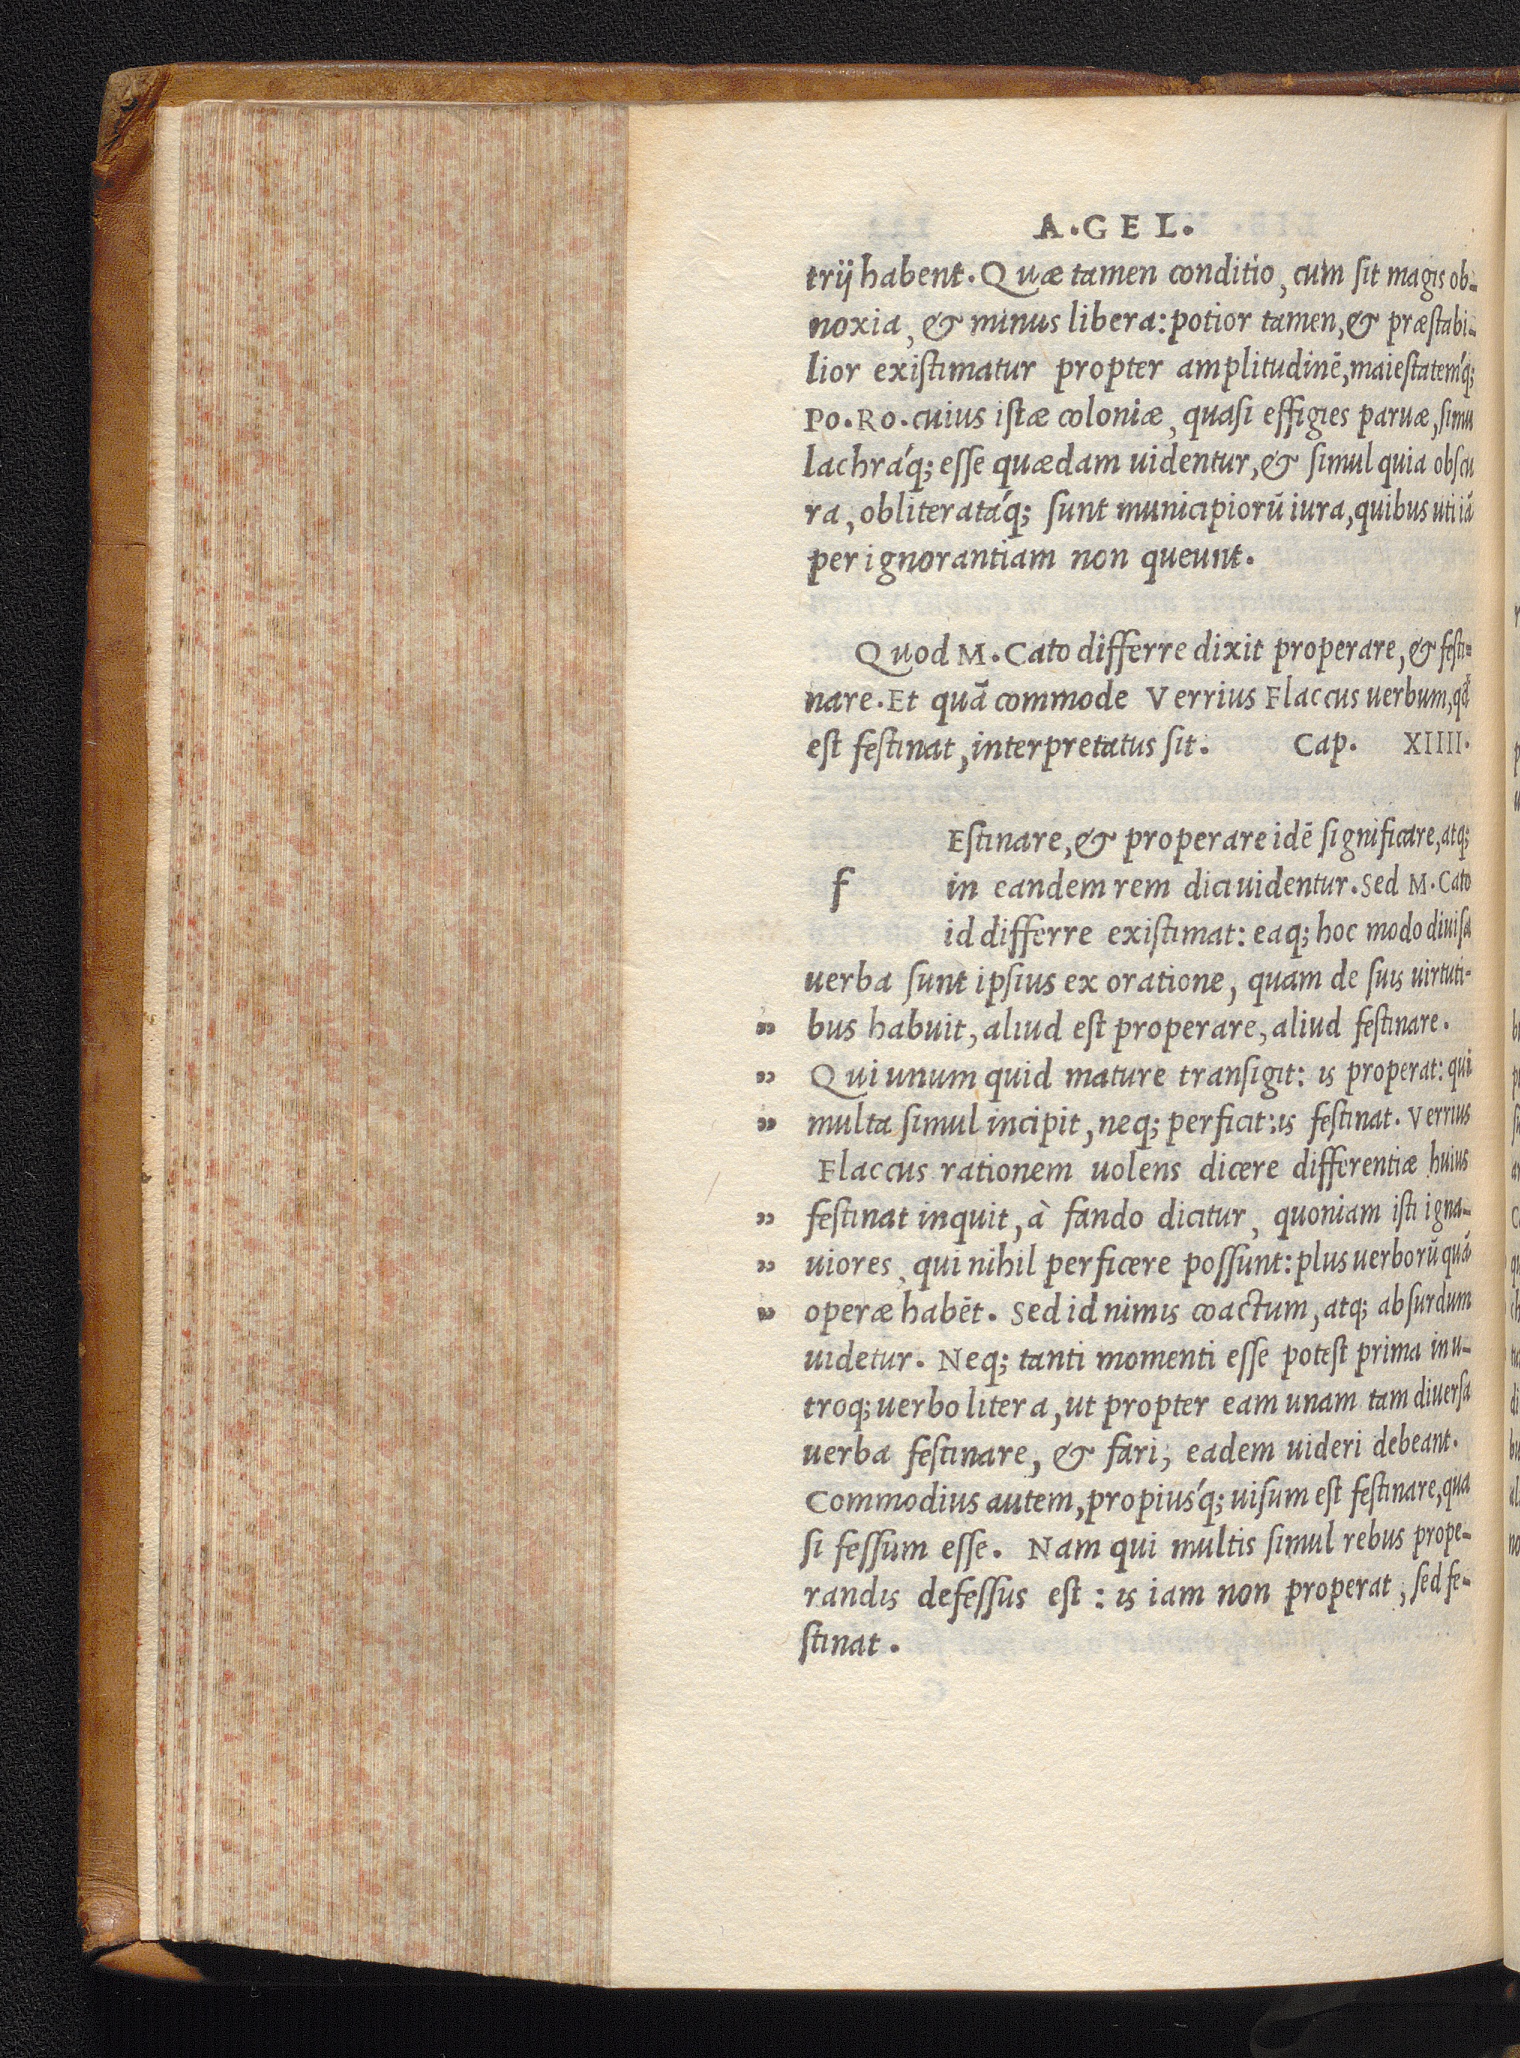 A.GEL.
trij habent. Quæ tamen conditio, cum ſit magis ob-
noxia, & minus libera: potior tamen, & præſtabi-
lior exiſtimatur propter amplitudinē, maieſtateḿq;
Po. Ro. cuius iſtæ coloniæ, quaſi effigies paruæ, ſimu
lachráq; eſſe quædam uidentur, & ſimul quia obſcu
ra, obliteratáq; ſunt municipiorū iura, quibus uti iā
per ignorantiam non queunt.
Quod M. Cato differre dixit properare, & feſti-
nare. Et quā commode Verrius Flaccus uerbum, qđ
eſt feſtinat, interpretatus ſit. Cap. XIIII.
Eſtinare, & properare idē ſignificare, atq;
f in eandem rem dici uidentur. Sed M. Cato
id differre exiſtimat: eaq; hoc modo diuiſa
uerba ſunt ipſius ex oratione, quam de ſuis uirtuti-
„ bus habuit, aliud eſt properare, aliud feſtinare.
„ Qui unum quid mature tranſigit: is properat: qui
„ multa ſimul incipit, neq; perficit: is feſtinat. Verrius
Flaccus rationem uolens dicere differentiæ huius
„ feſtinat inquit, à fando dicitur, quoniam iſti igna-
„ uiores, qui nihil perficere poſſunt: plus uerborū quā
„ operæ habēt. Sed id nimis coactum, atq; abſurdum
uidetur. Neq; tanti momenti eſſe poteſt prima in u-
troq; uerbo litera, ut propter eam unam tam diuerſa
uerba feſtinare, & fari, eadem uideri debeant.
Commodius autem, propiuśq; uiſum eſt feſtinare, qua
ſi feſſum eſſe. Nam qui multis ſimul rebus prope-
randis defeſſus eſt: is iam non properat, ſed fe-
ſtinat.